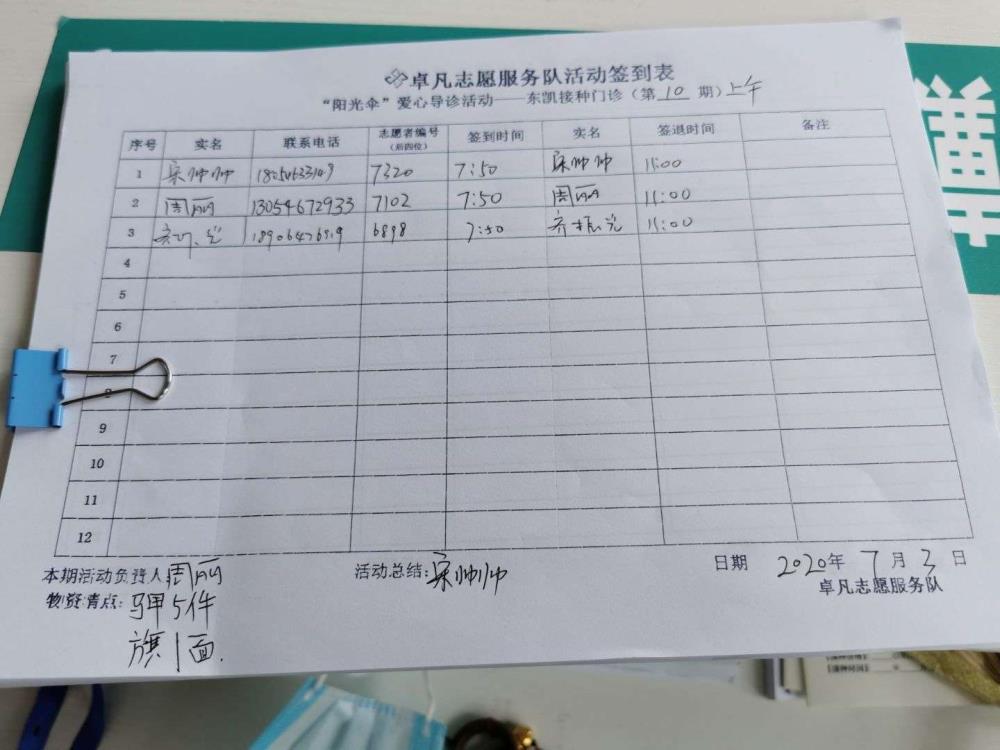 卓凡志愿服务队活动签到表
“阳光伞”爱心导诊活动——东凯接种门诊（第10期）上午
序号 实名 联系电话 志愿者编号（后四位） 签到时间 实名 签退时间 备注
1 宋帅帅 7320 7:50 宋帅帅 11:00
2 周丽 13054672933 7102 7:50 周丽 11:00
3 6898 7:50 齐振兰 11:00
4
5
6
7
8
9
10
11
12
本期活动负责人 周丽 活动总结：宋帅帅 日期 2020年7月3日
物资清点：马甲5件 卓凡志愿服务队
旗1面.